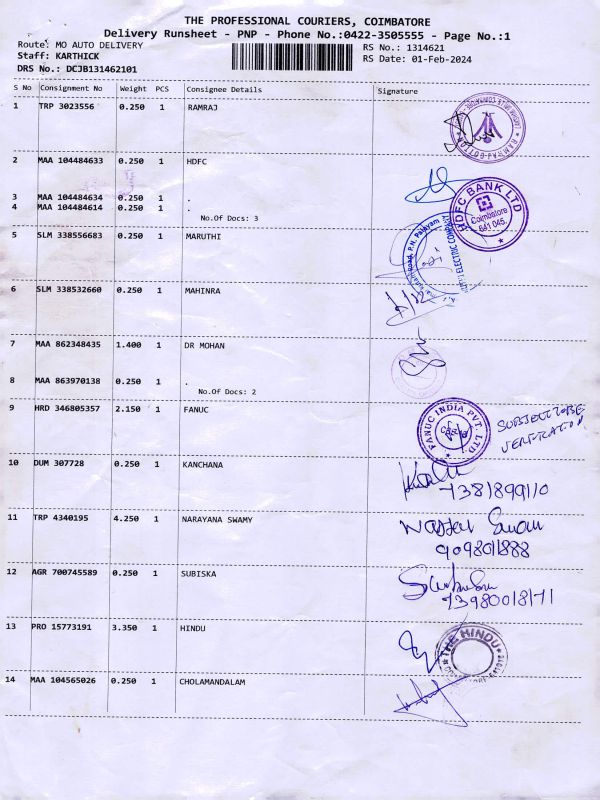 THE PROFESSIONAL COURIERS, COIMBATORE
Delivery Runsheet - PNP - Phone No.:0422-3505555 - Page No.:1
Route: MO AUTO DELIVERY RS No.: 1314621
Staff: KARTHICK RS Date: 01-Feb-2024
DRS No.: DCJB131462101
S No Consignment No Weight PCS Consignee Details Signature
1 TRP 3023556 0.250 1 RAMRAJ
RAMRAJ COTTON
2 MAA 104484633 0.250 1 HDFC
HDFC BANK LTD
Coimbatore
641 045.
3 MAA 104484634 0.250 1 .
4 MAA 104484614 0.250 1 .
No.Of Docs: 3
5 SLM 338556683 0.250 1 MARUTHI
ELECTRIC COMPANY
P.N. Palayam
6 SLM 338532660 0.250 1 MAHINRA
7 MAA 862348435 1.400 1 DR MOHAN
8 MAA 863970138 0.250 1 .
No.Of Docs: 2
9 HRD 346805357 2.150 1 FANUC
FANUC INDIA PVT. LTD
SUBJECT TO BE
VERIFICATION
10 DUM 307728 0.250 1 KANCHANA
7381899110
11 TRP 4340195 4.250 1 NARAYANA SWAMY
9098011888
12 AGR 700745589 0.250 1 SUBISKA
73980018171
13 PRO 15773191 3.350 1 HINDU
THE HINDU
14 MAA 104565026 0.250 1 CHOLAMANDALAM